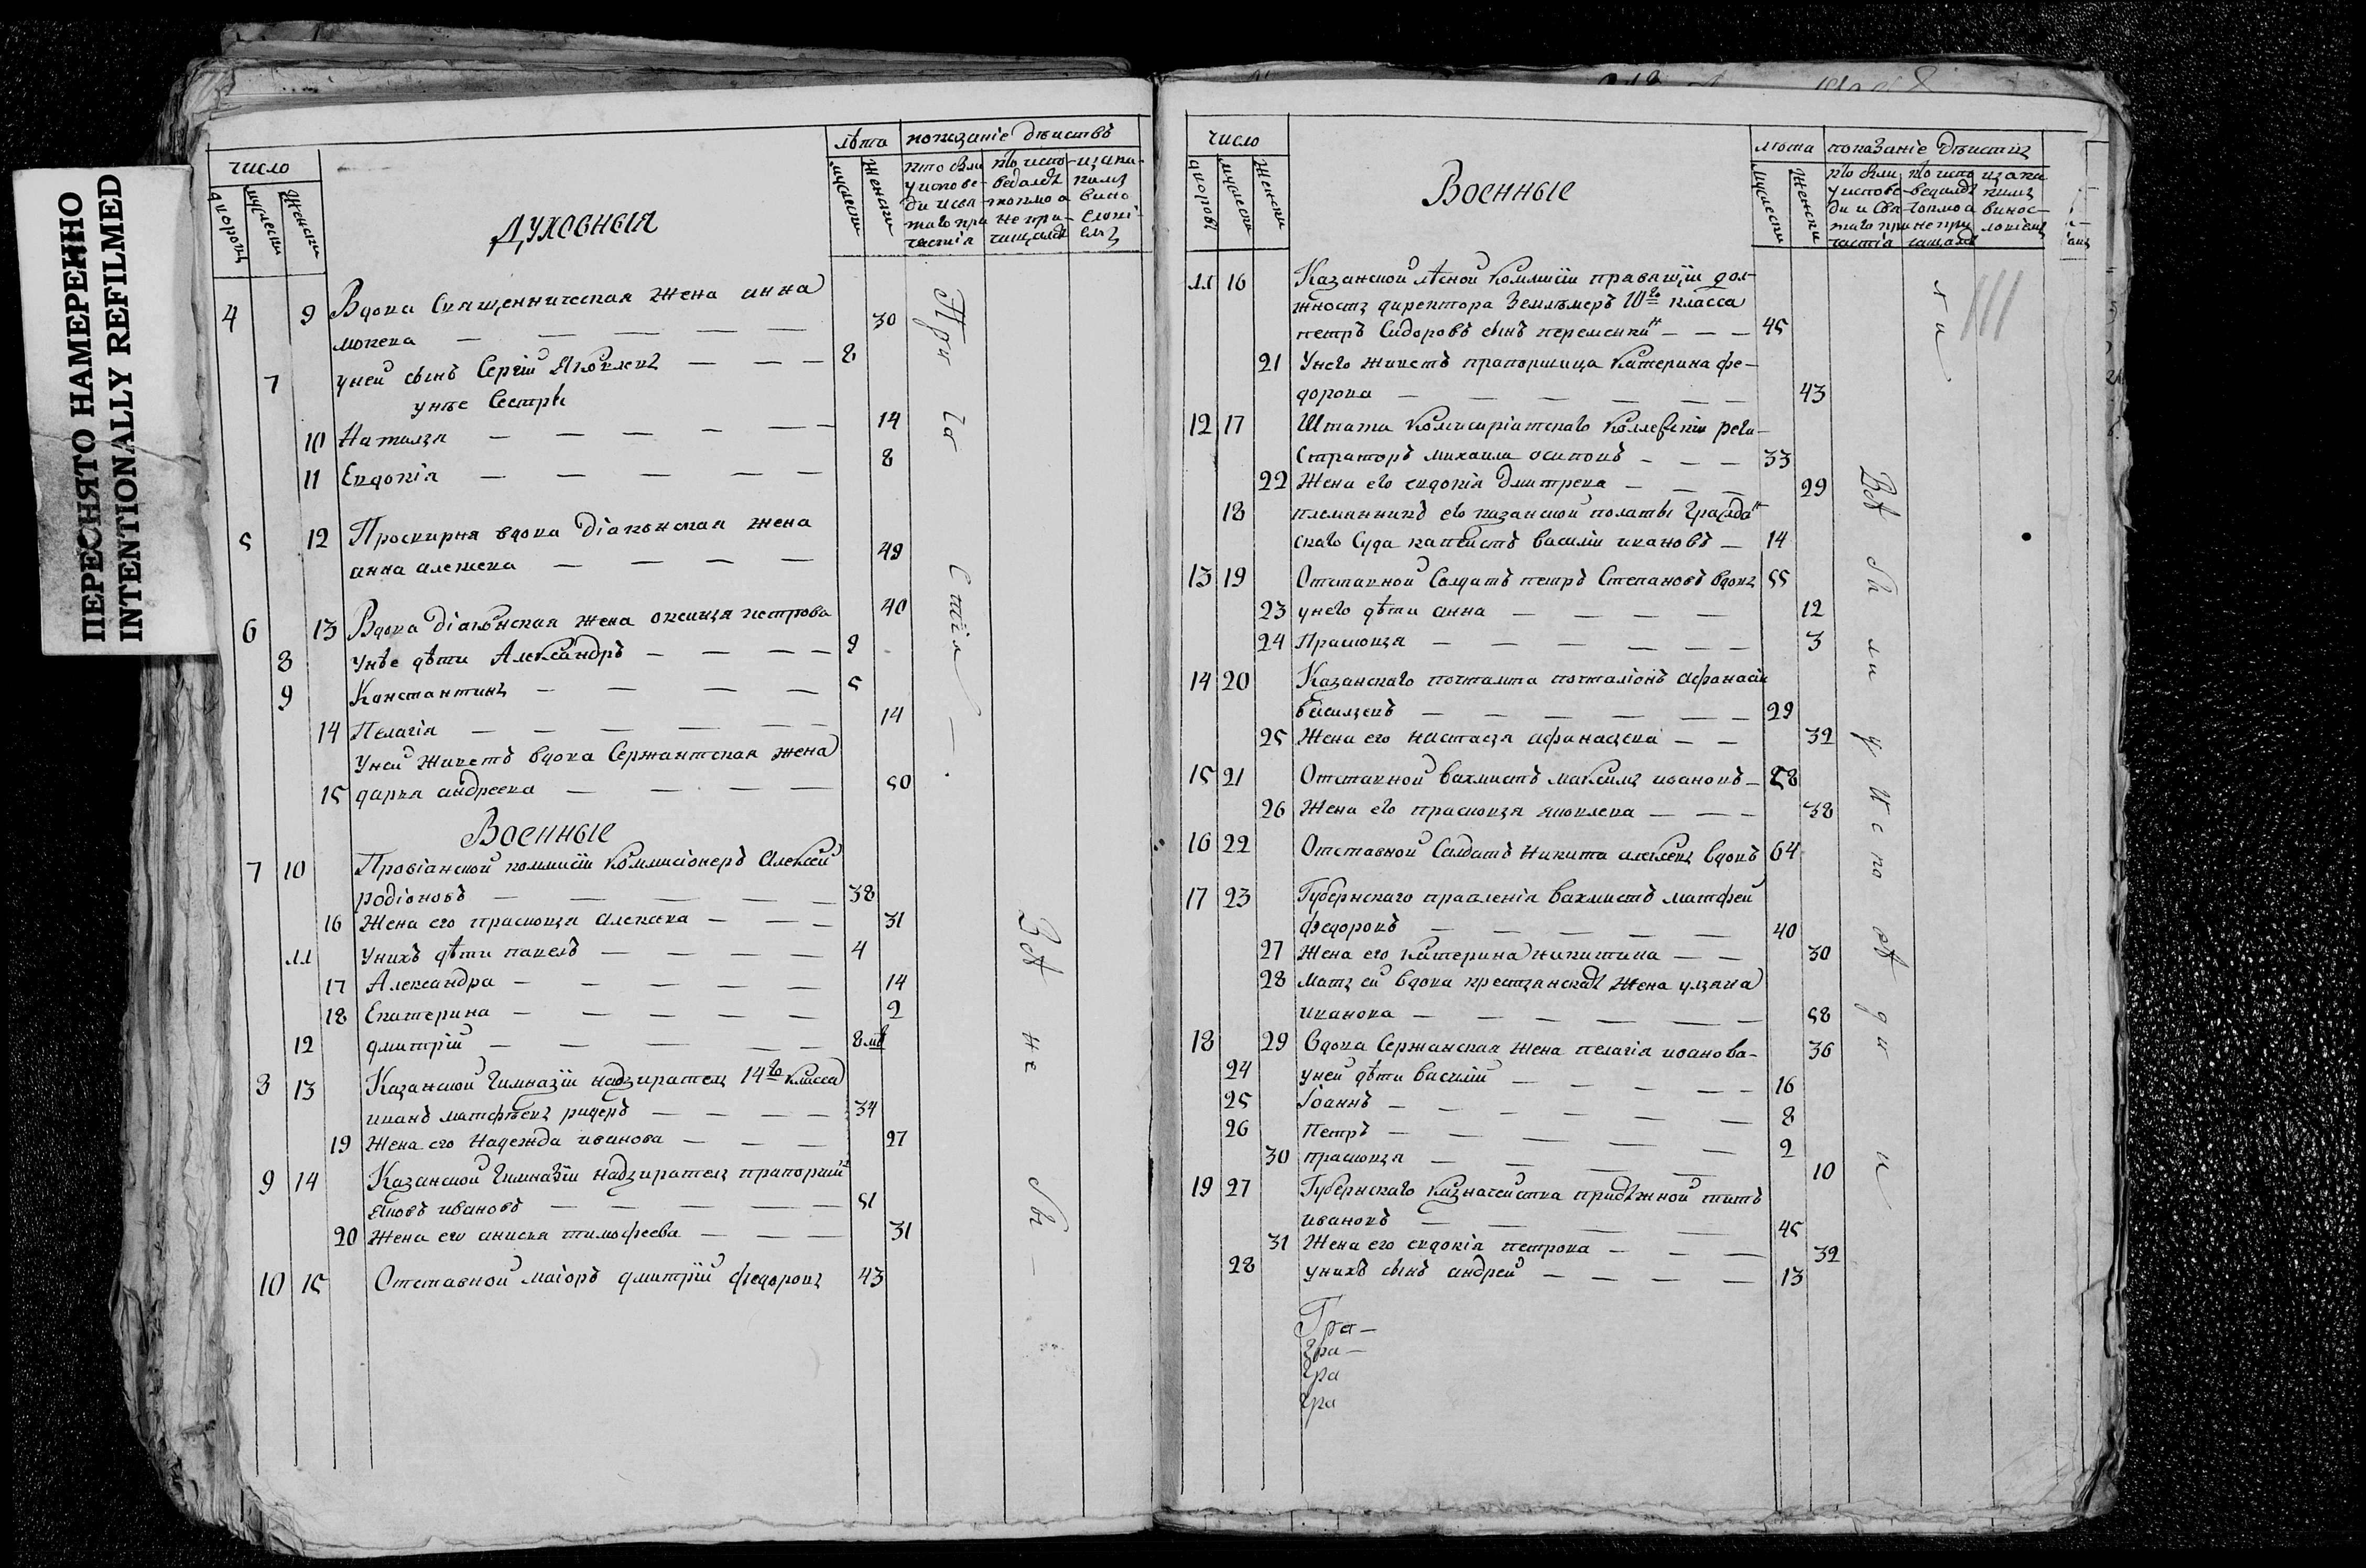 ПЕРЕСНЯТО НАМЕРЕННО
INTENTIONALLY REFILMED
число
дворовъ
мужески
женски
Духовныя
лѣта
мужески
женски
показаніе дѣиствъ
кто были кто испо- изака-
у испове- ведался кимъ
ди исвя- токмо а вино
таго при не при- словi-
частія чащался емъ
4 9 Вдова Священническая жена анна
мокева 30
7 уней сынъ Сергій Яковлевъ 8
унее Сестры
10 Наталья 14
11 Евдокія 8
5 12 Проскирня вдова діаконская жена
анна алекѣева 49
6 13 Вдова діаконская жена оксинья петрова 40
8 унѣе дѣти Александръ 9
9 Константинъ 5
14 Пелагія 14
Уней живетъ вдова Сержантская жена
15 дарья андреева 50
Военные
7 10 Провіанской коммисіи Коммисіонеръ Алексей
родіоновъ 38
16 Жена его прасковья алексеева 31
11 Унихъ дѣти павелъ 4
17 Александра 14
18 Екатерина 2
12 дмитріи 8 мѣ
8 13 Казанской Гимназіи надзиратель 14го класса
иванъ матфѣевъ ридеръ 34
19 Жена его Надежда иванова 27
9 14 Казанской Гимназіи надзиратель прапорщик
Яковъ ивановъ 51
20 Жена его анисья тимофеева 31
10 15 Отставной маіоръ дмитріи федоровъ 43
При ча стія
Всѣ не бы
число
дворовъ
мужески
женски
Военные
лѣта
мужески
женски
показаніе дѣиствъ
кто были кто испо изака
у испове- ведался кимъ
ди и свя- токмо а винос-
таго при не при ловіемъ
частія чащался
11 16 Казанской лѣсной коммисіи правящіи дол-
жность директора Землѣмеръ 10го класса
петръ Сидоровъ сынъ 45
21 Унего живетъ прапорщица Катерина фе-
дорова 43
12 17 Штата комисиріатскаго Коллежскіи реги-
страторъ михаила осиповъ 33
22 Жена его евдокія дмитрева 29
18 племянникъ его казанской полаты Гражда
скаго Суда капѣистъ василіи ивановъ 14
13 19 Отставной Солдатъ петръ Степановъ вдовъ 55
23 унего дѣти анна 12
24 Прасковья 3
14 20 Казанскаго почтамта почталіонъ Афанасіи
васильевъ 29
25 Жена его настасья афанасьева 32
15 21 Отставной вахмистъ максимъ ивановъ 58
26 Жена его прасковья яковлева 38
16 22 Отставной Солдатъ никита алексеевъ вдовъ 64
17 23 Губернскаго правленія вахмистъ матфеи
федоровъ 40
27 Жена его Катерина никитина 30
28 мать ей вдова крестьянская жена ульяна
иванова 58
18 29 Вдова Сержанская жена пелагія иванова 36
24 уней дѣти василіи 16
25 Іоаннъ 8
26 Петръ 2
30 прасковья 10
19 27 Губернскаго казначейства присяжной титъ
ивановъ 45
31 Жена его евдокія петрова 32
28 унихъ сынъ андрей 13
Гра-
гра-
гра
гра
Всѣ бы ли у и с по вѣ д и